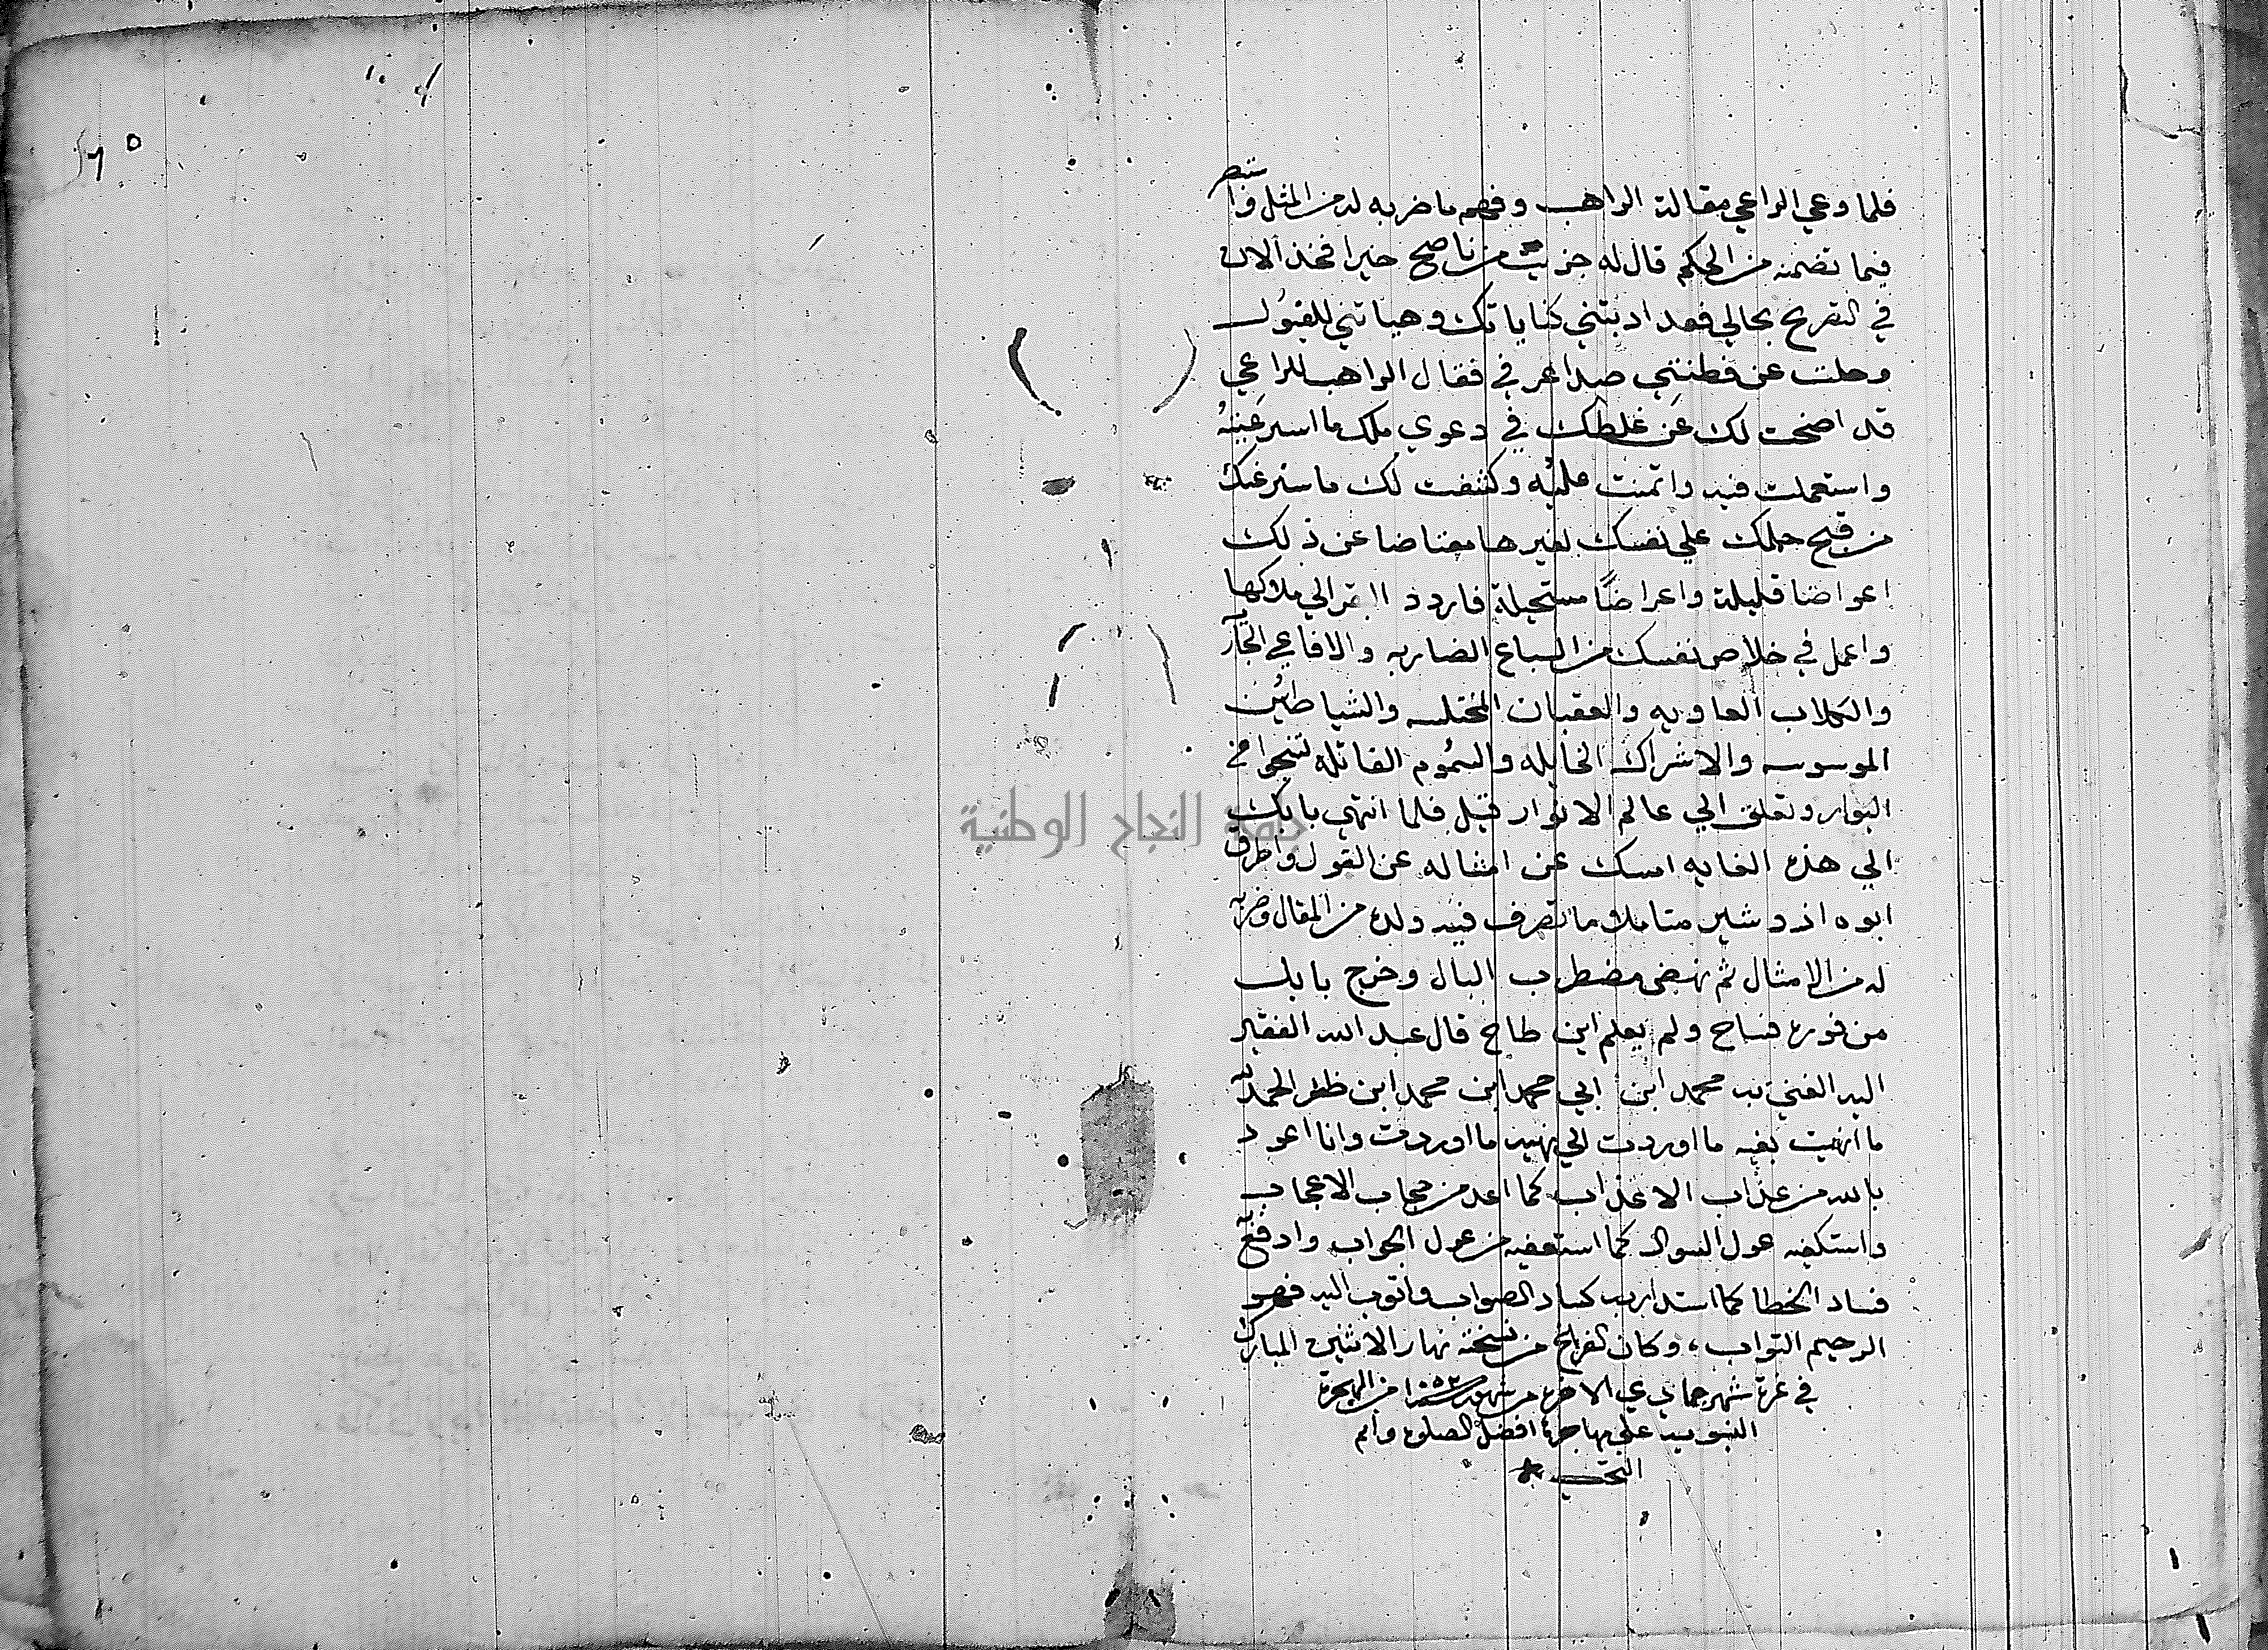 فلما وعي الراعي مقالة الراهب وفهم ما ضربه له من المثل وا
فيما تضمنه من الحكم قال له جزيت من ناصح خيرا فخذ الان
في التقريع بحالي فقد ادبتني كناياتك وهياتني للقبول
وجلت عن فطنتي صدا عرفي فقال الراهب للراعي
قد اضحت لك عن غلطك في دعوي ملك ما استرعيته
واستعملت فيه واتمنت عليه وكشفت لك ما ستر عنك
من قبح حملك علي نفسك لغيرها معتاضا عن ذلك
اعواضا قليلة واعراضاً مستحيلة فاردد البقر الي ملاكها
واعمل في خلاص نفسك من السباع الضاريه والافاعي
والكلاب العاويه والعقبان المختلسه والشياطين
الموسوسه والاشراك الخابله والسموم القاتله لتنجوا من
البوار وتعلق الي عالم الانوار قيل فلما انتهي بابك
الي هذه الغايه امسك عن امثاله عن القول واطرق
ابوه اذدشير متاملا ما تصرف فيه ولده من المقال وضربه
له من الامثال ثم نهض مضطرب البال وخرج بابك
من فوره فساح ولم يعلم اين طاح قال عبد الله الفقير
اليه الغني به محمد ابن ابي محمد ابن محمد ابن ظفر الحمد لله
ما انهيت بغيه ما اوردت الي نهيه ما اوردت وانا اعود
بالله من عذاب الاعذاب كما اعد من حجاب الاعجاب
واستكفيه عول السوال كما استعفيه من عول الجواب وادفع
فساد الخطا كما استدل به كساد الصواب واتوب اليه فهو
الرحيم التواب، وكان الفراغ من نسخته نهار الاثنين المبارك
في غرة شهر جمادي الاخره من شهور سنة ١٠٥٢ من الهجرة
النبويه علي مهاجرها افضل الصلوه واتم
التحيه
جامعة النجاح الوطنية